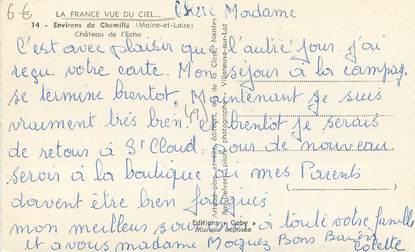 6 €
LA FRANCE VUE DU CIEL...
14 - Environs de Chemillé (Maine-et-Loire)
Château de l'Echo
Chère Madame
C'est avec plaisir que l'autre jour j'ai
reçu votre carte. Mon séjour à la campag.
se termine bientot. Maintenant je suis
vraiment très bien. et bientot je serais
de retour à St Cloud. Pour de nouveau
servir à la boutique où mes Parents
doivent être bien
mon meilleur souvenir à toute votre famille
et a vous madame Bons Baisers
Colette
Editions "Gaby"
Marque déposée